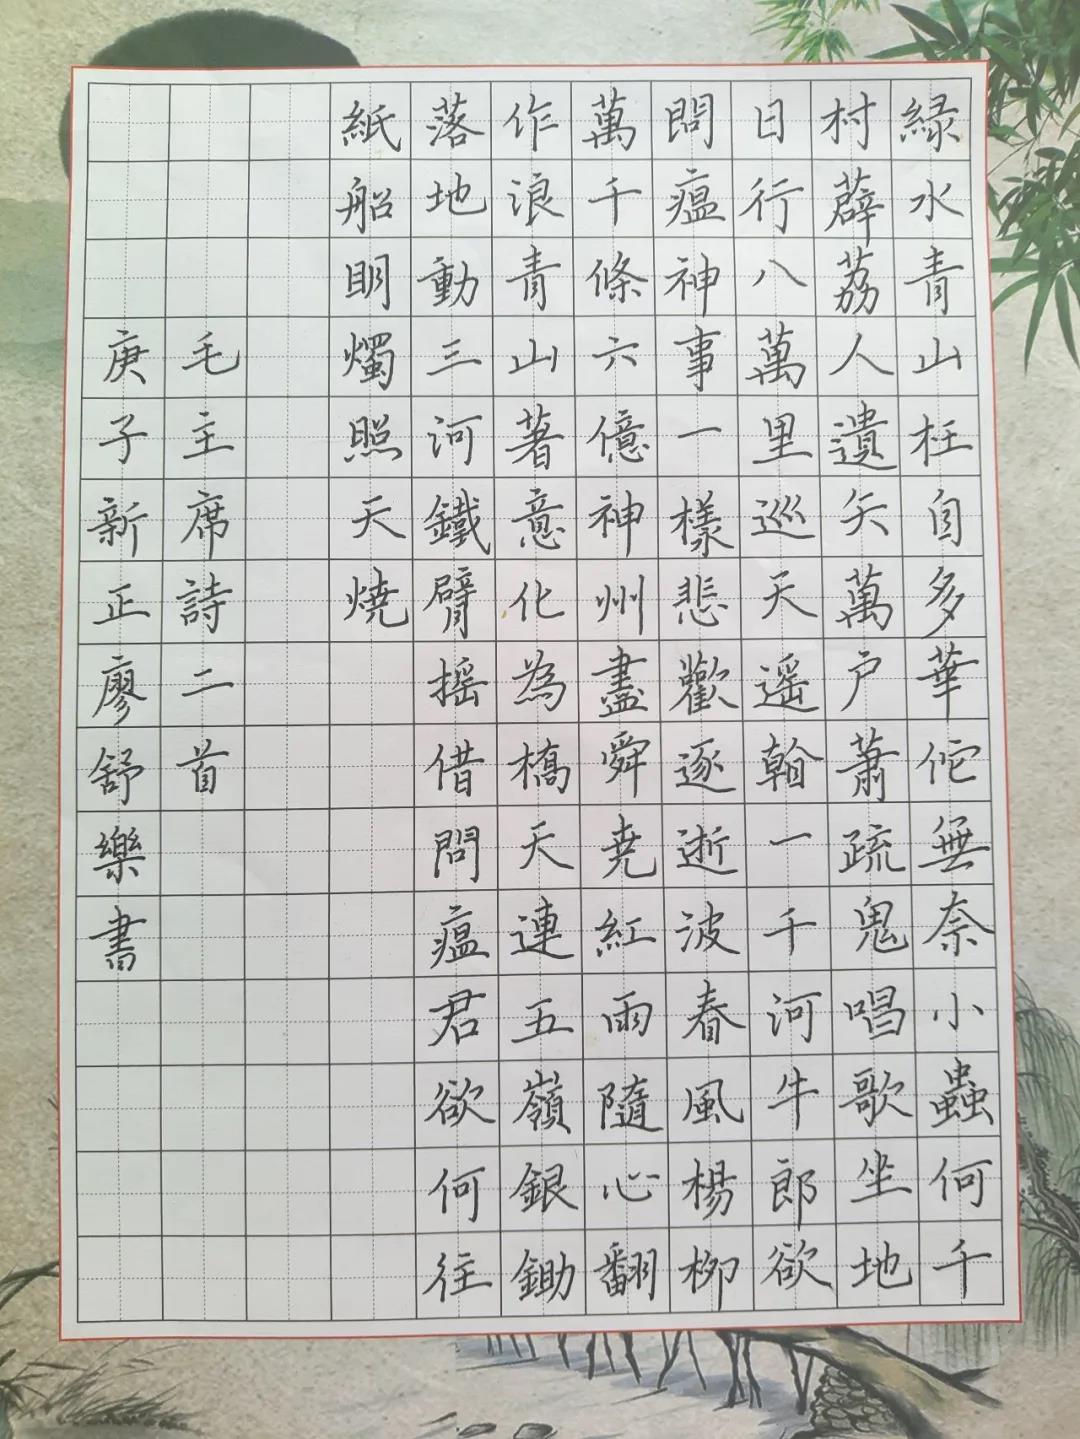 緑水青山枉自多華佗無奈小蟲何千
村薜荔人遺矢萬户蕭疏鬼唱歌坐地
日行八萬里巡天遥翰一千河牛郎欲
問瘟神事一樣悲歡逐逝波春風楊柳
萬千條六億神州盡舜尭紅雨隨心翻
作浪青山著意化為橋天連五嶺銀鋤
落地動三河鐵臂摇借問瘟君欲何往
紙船明燭照天燒
毛主席詩二首
庚子新正廖舒樂書